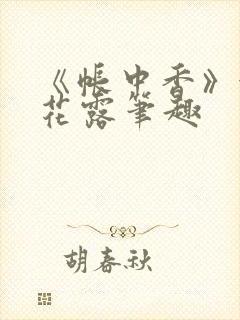 《帐中香》
花露笔趣
胡春秋